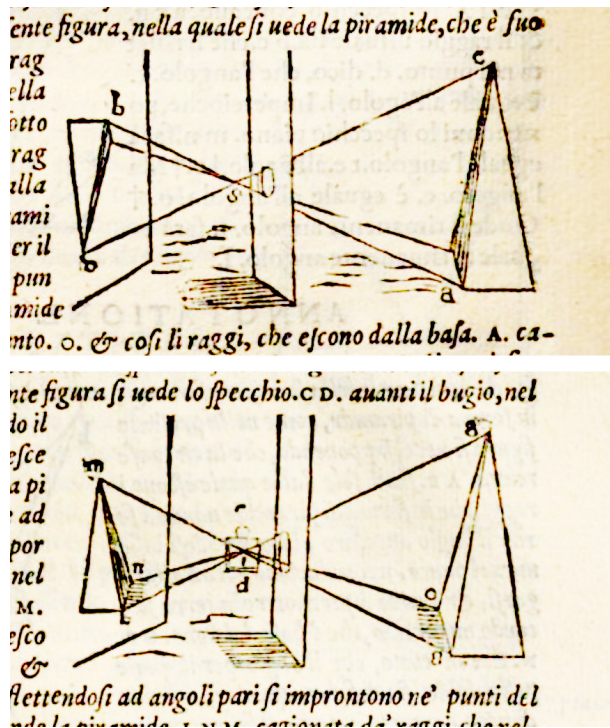 ente figura, nella quale si uede la piramide, che è suo
rag
ella
otto
rag
alla
ami
er il
pun
amide
b
c
s
o
a
nto. O. & cosi li raggi, che escono dalla basa. A. ca-
nte figura si uede lo specchio. C D. auanti il bugio, nel
do il
esce
a pi
e ad
por
nel
M.
esco
&
m
g
n
d
o
flettendosi ad angoli pari si improntono ne' punti del